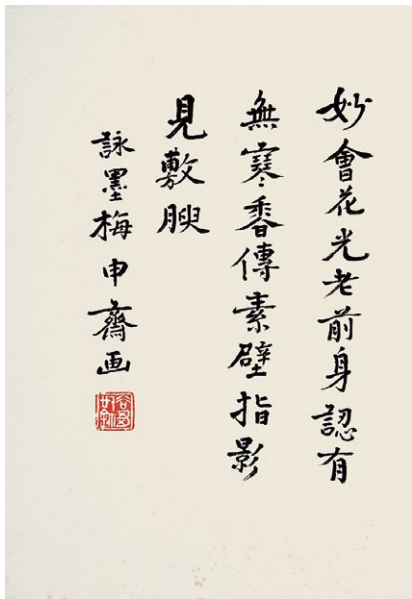 妙會花光老前身認有
無寒香傳素壁指影
見敷腴
詠墨梅申齋画